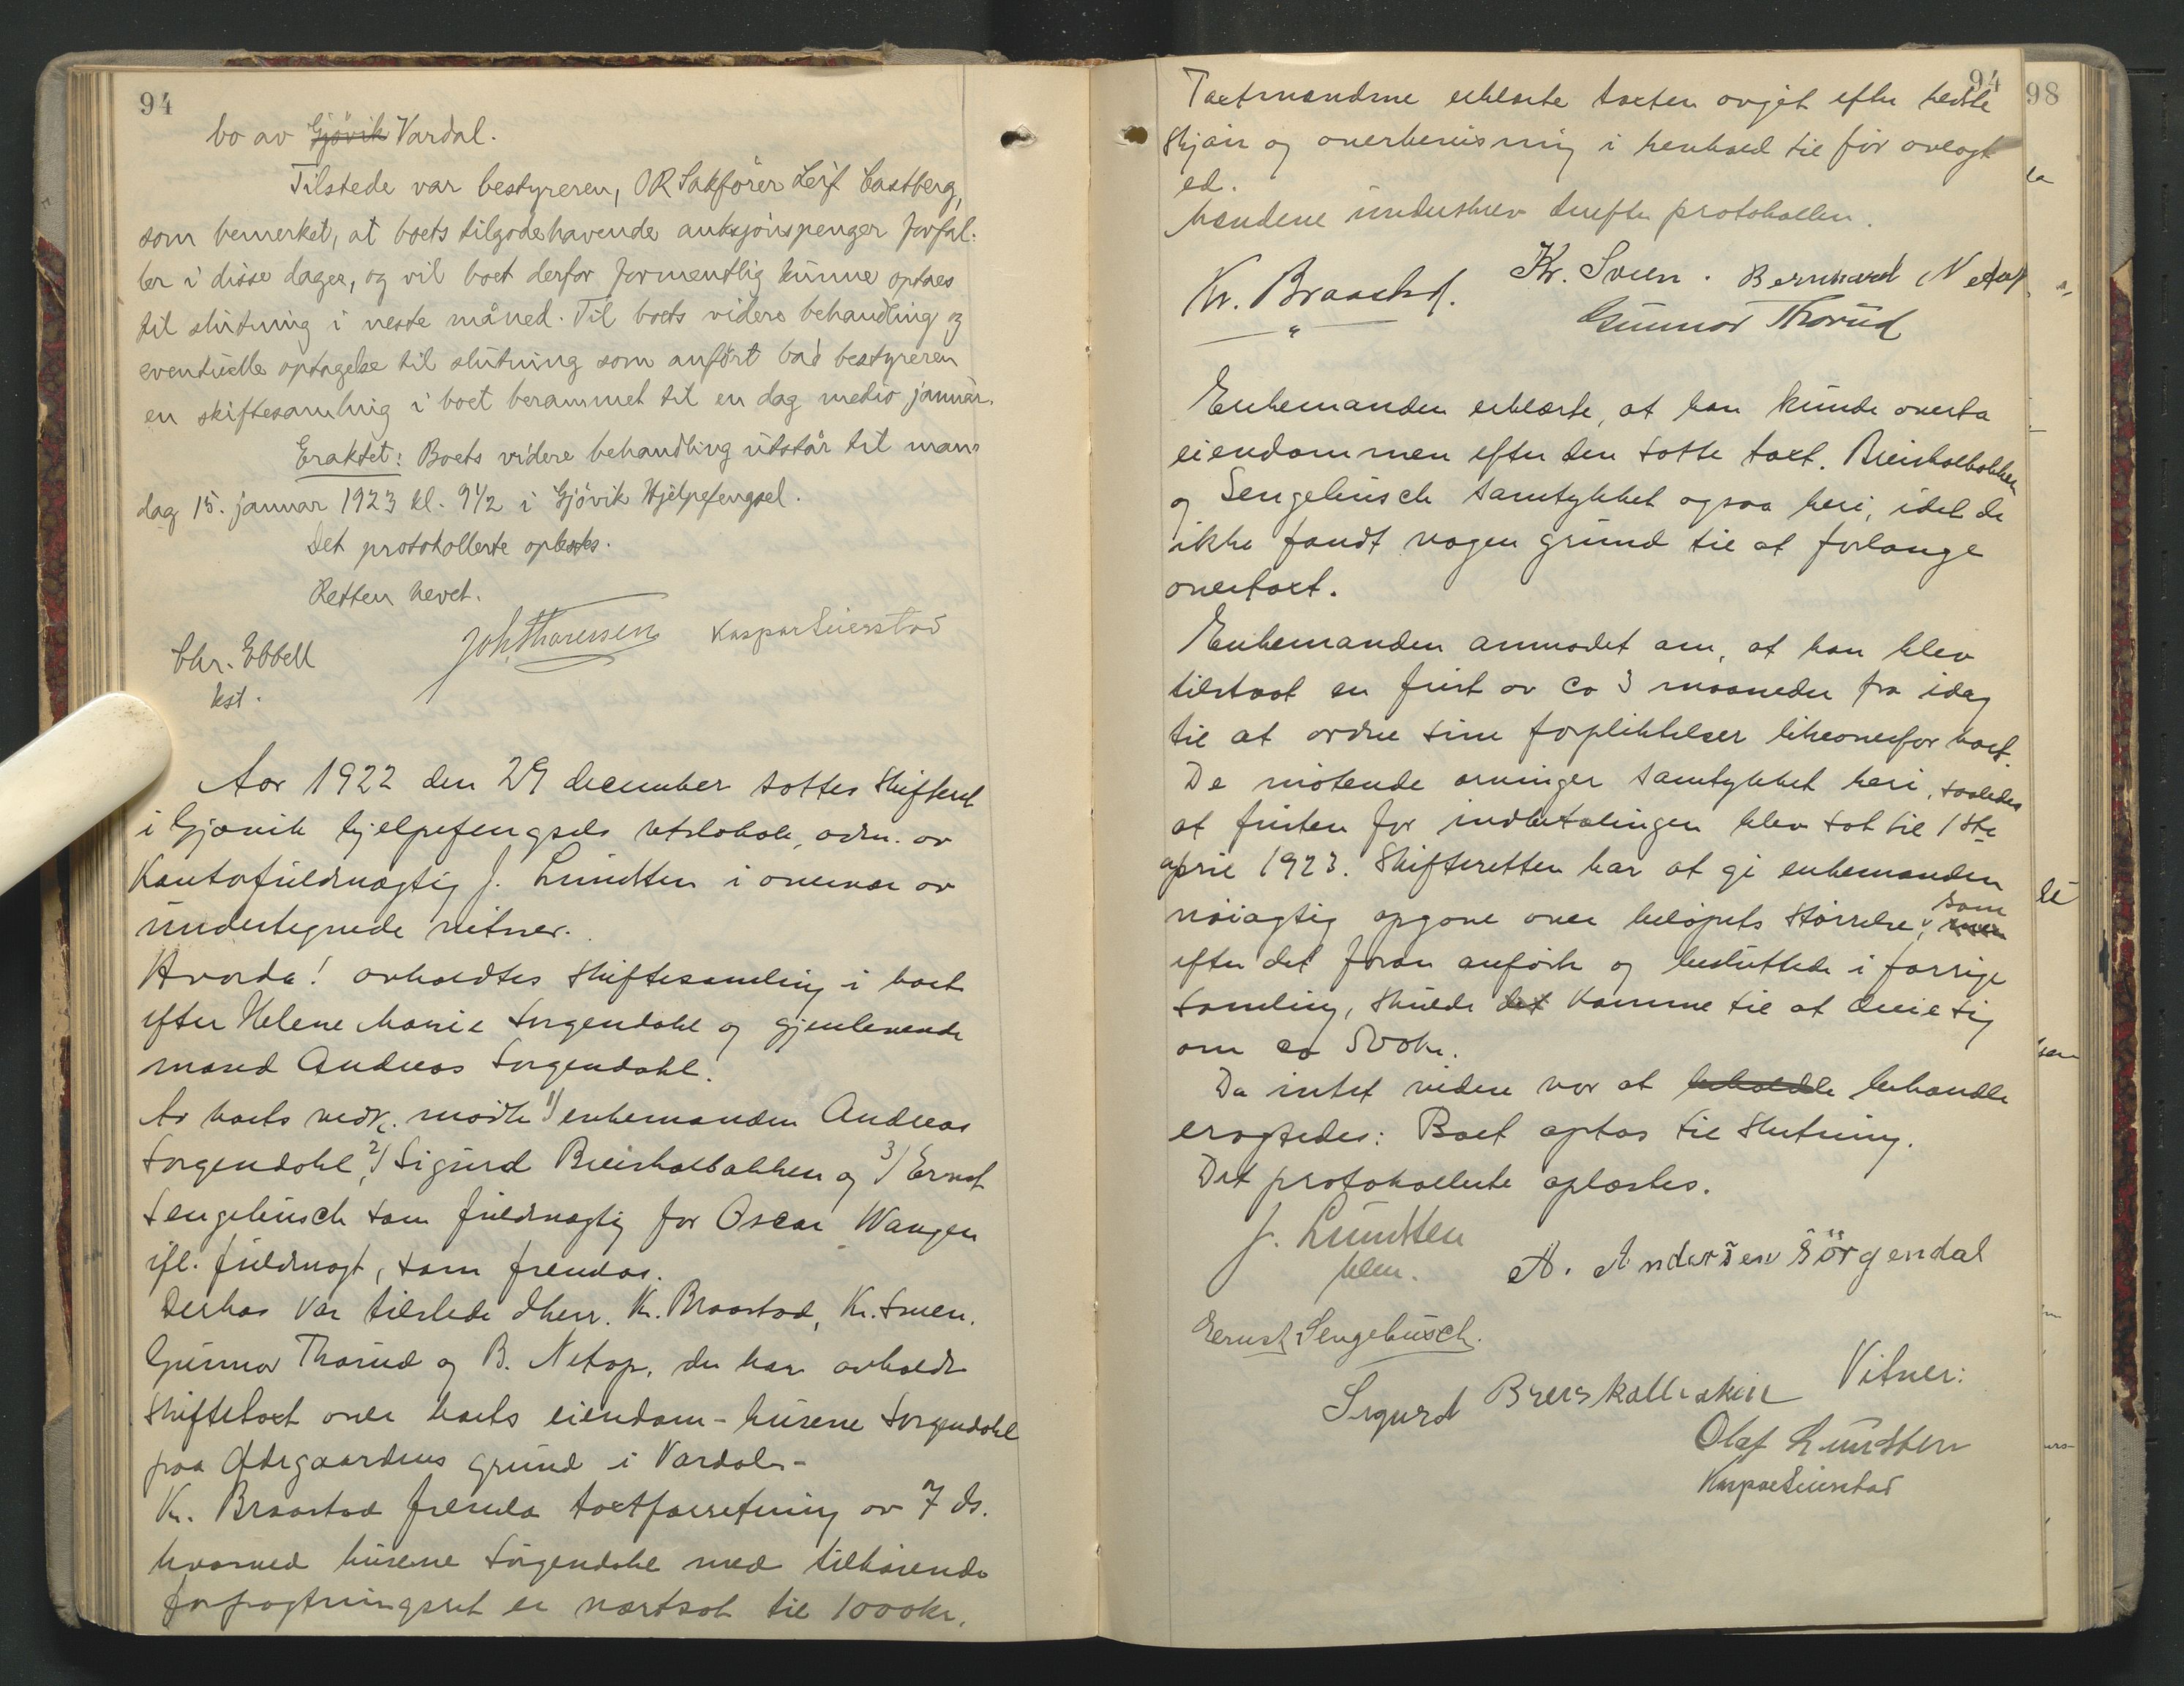 94
bo av Gjövik Vardal.
Tilstede var bestyreren, OR Sakfører Leif Castberg,
som bemerket, at boets tilgodehavende auksjonspenger forfal-
ler i disse dager, og vil boet derfor formentlig kunne optaes
til slutning i neste måned. Til boets videre behandling og
eventuelle optagelse til slutning som anført bad bestyreren
en skiftesamling i boet berammet til en dag medio januar.
Eraktet: Boets videre behandling utstår til man-
dag 15. januar 1923 kl. 9 1/2 i Gjövik Hjelpefengsel.
Det protokollerte oplæstes.
Retten hevet.
Chr. Ebbell
kst.
Joh. Thoresen Kaspar Seierstad
Aar 1922 den 29 december sattes Skifteret
i Gjøvik hjelpefengsels retslokale, adm. av
Kontorfuldmægtig J. Lundsten i overvær av
undertegnede vitner.
Hvorda! avholdtes skiftesamling i boet
efter Helene Marie Sørgendahl og gjenlevende
mand Andreas Sørgendahl.
Av boets vedk. mødte 1/ enkemanden Andreas
Sørgendahl, 2/ Sigurd Breiskalbakken og 3/ Ernst
Sengebusch som fuldmægtig for Oscar Wangen
ifl. fuldmagt, som fremlas.
Derhos var tilstede dherr. Kr. Braastad, Kr. Sveen,
Gunnar Thorud og B. Netop, der har avholdt
skiftetaxt over boets eiendom - husene Sørgendahl
paa Ødegaardens grund i Vardal. -
Kr. Braastad fremla taxtforretning av 7 ds.
hvorved husene Sørgendahl med tilhørende
forpagtningsret er værtsat til 1000 kr.
94
98
Taxtmændene erklærte taxten avgit efter bedste
skjøn og overbevisning i henhold til før avlagt
ed.
Mændene underskrev derefter protokollen.
Kr. Braastad. Kr. Sveen. Bernhard Netop
Gunnar Thorud
Enkemanden erklærte, at han kunde overta
eiendommen efter den satte taxt. Breiskalbakken
og Sengebusch samtykket ogsaa heri, idet de
ikke fandt nogen grund til at forlange
overtaxt.
Enkemanden anmodet om, at han blev
tilstaat en frist av ca 3 maaneder fra idag
til at ordne sine forpliktelser likeoverfor boet.
De møtende arvinger samtykket heri, saaledes
at fristen for indbetalingen blev sat til 1ste
april 1923. Skifteretten har at gi enkemanden
nøiagtig opgave over beløpets størrelse, som
efter det foran anførte og besluttede i forrige
samling, skulde det komme til at dreie sig
om ca 500 kr.
Da intet videre var at beholdle behandle
eragtedes: Boet optas til slutning.
Det protokollerte oplæstes.
J. Lundsten
A. Andersen Sörgendal
Ernst Sengebusch.
Sigurd Breiskallbakken
Vitner:
Olaf Lundsten
Kaspar Seierstad